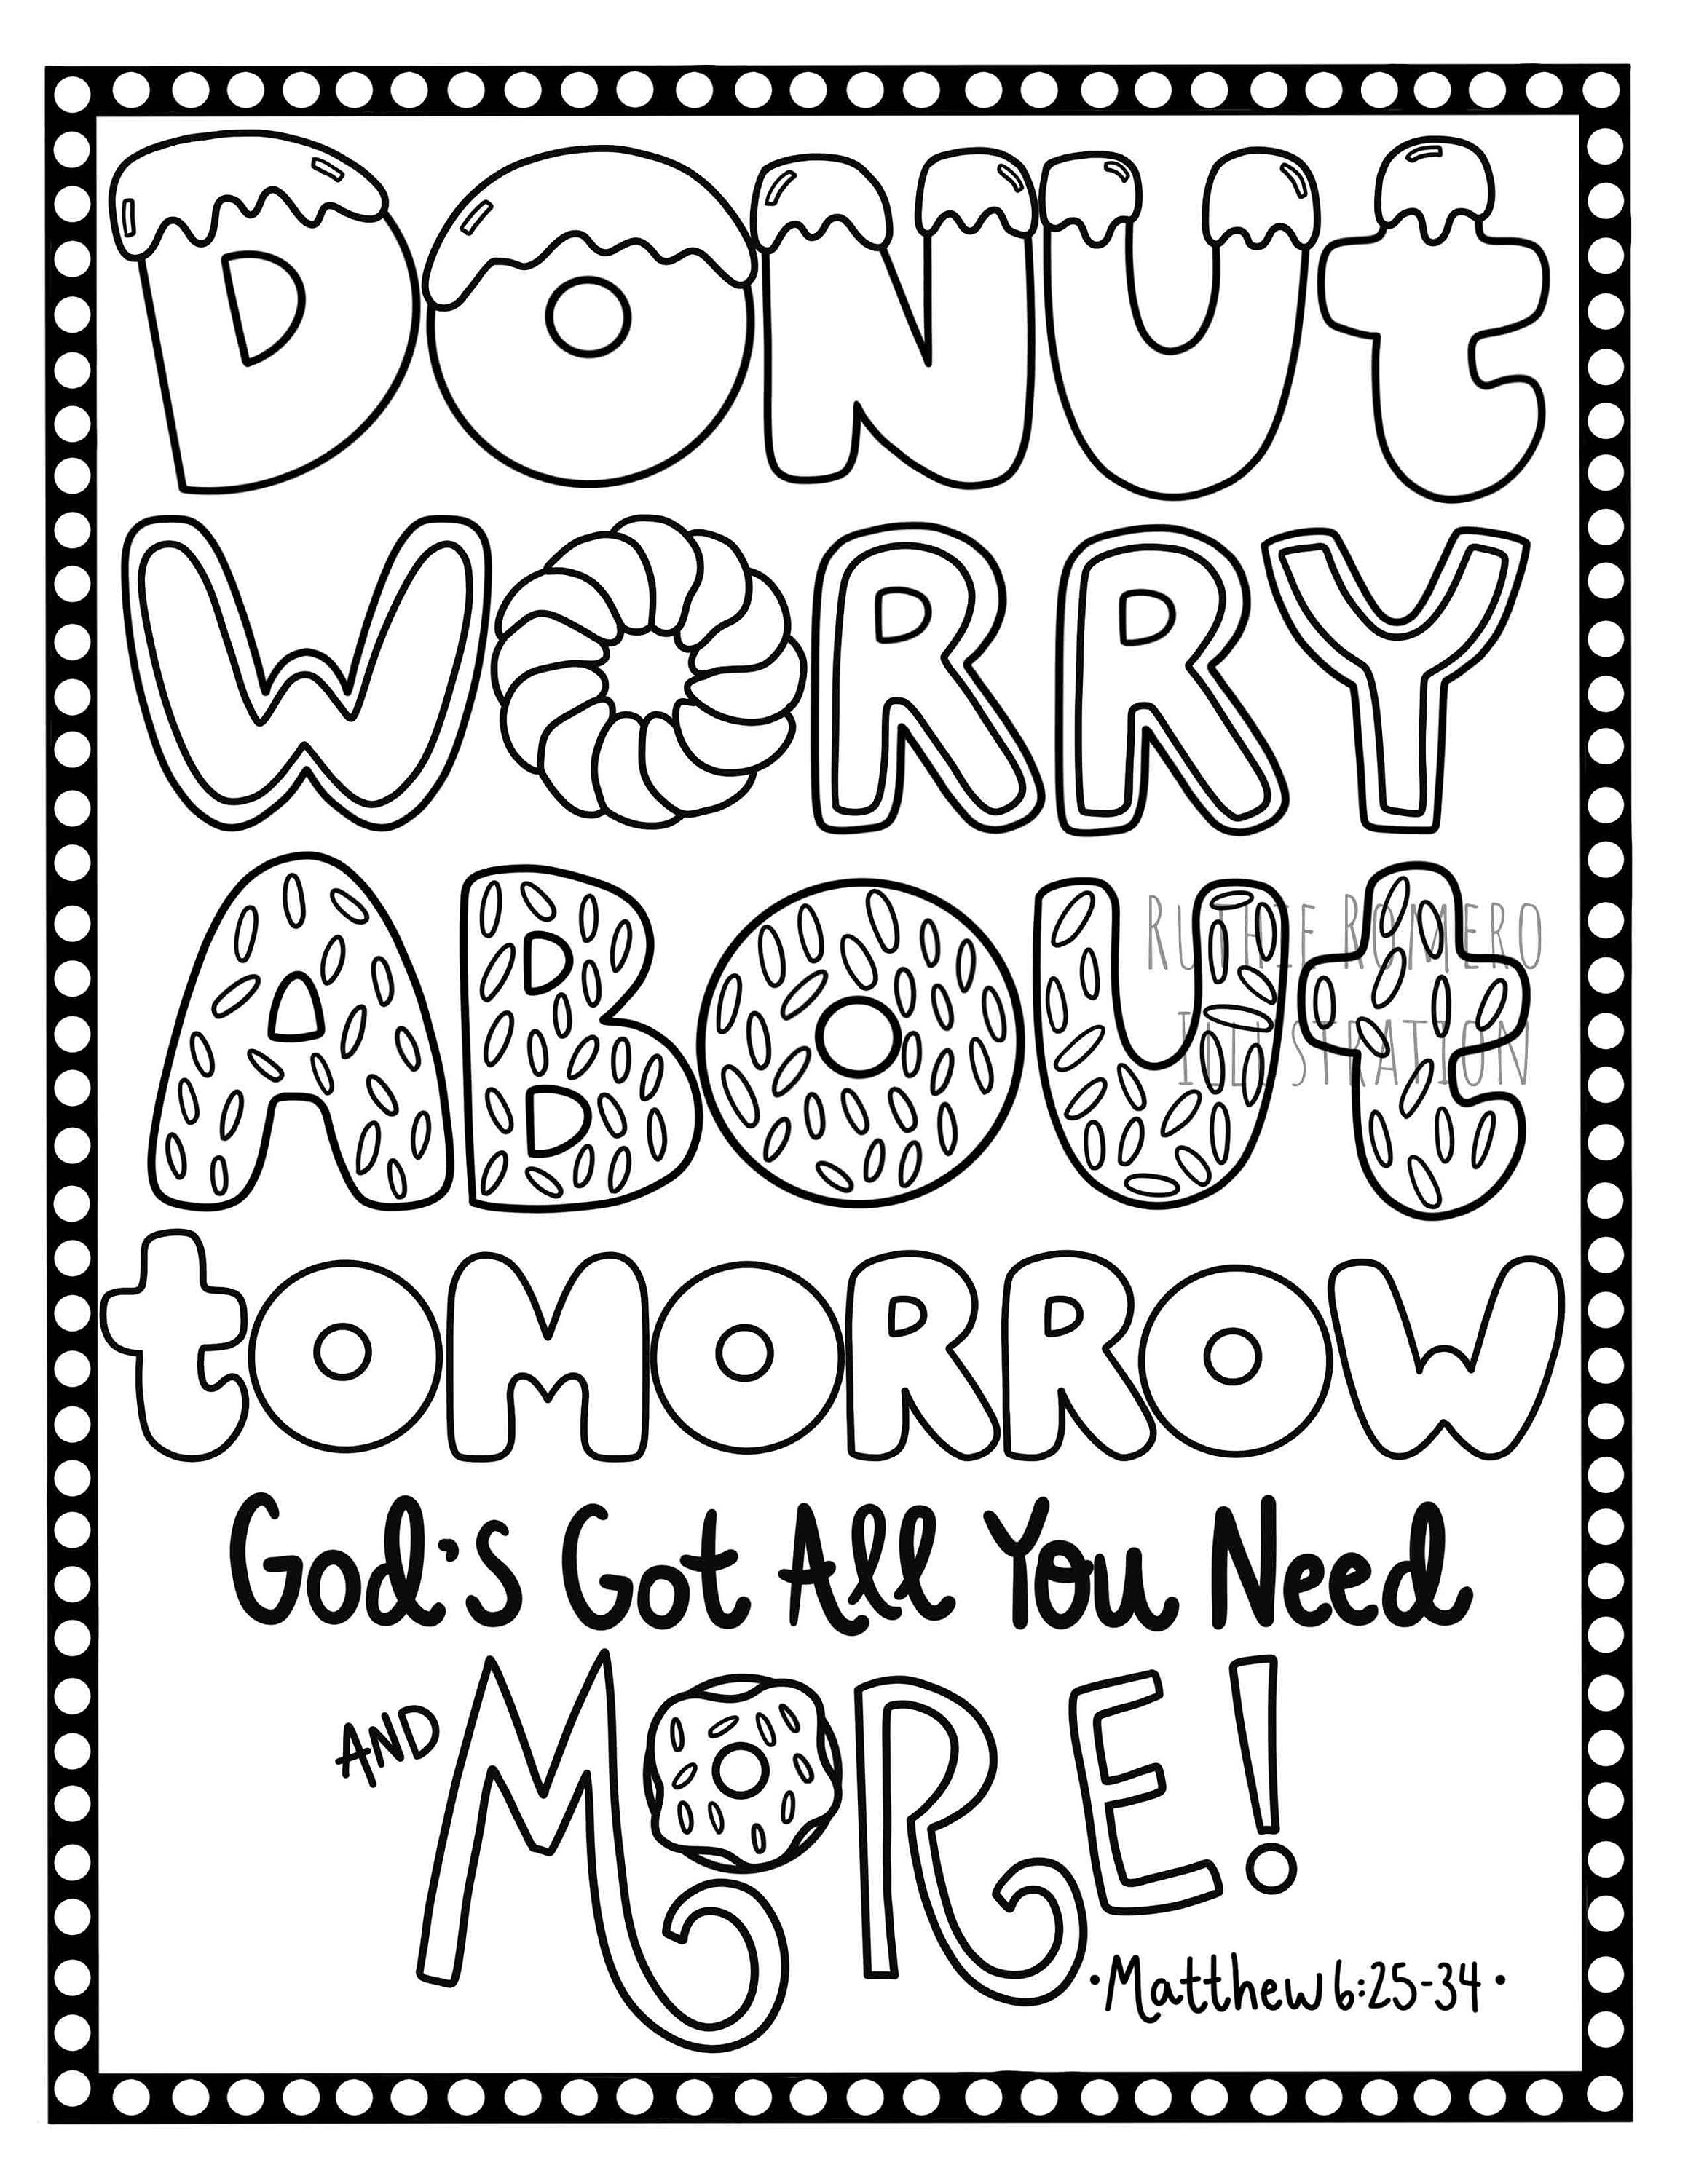 DONUt
WORRY
ABOUt
RUTHIE ROMERO
ILLUSTRATION
tOMORROW
God's Got All You Need
AND MORE!
•Matthew 6:25-34•